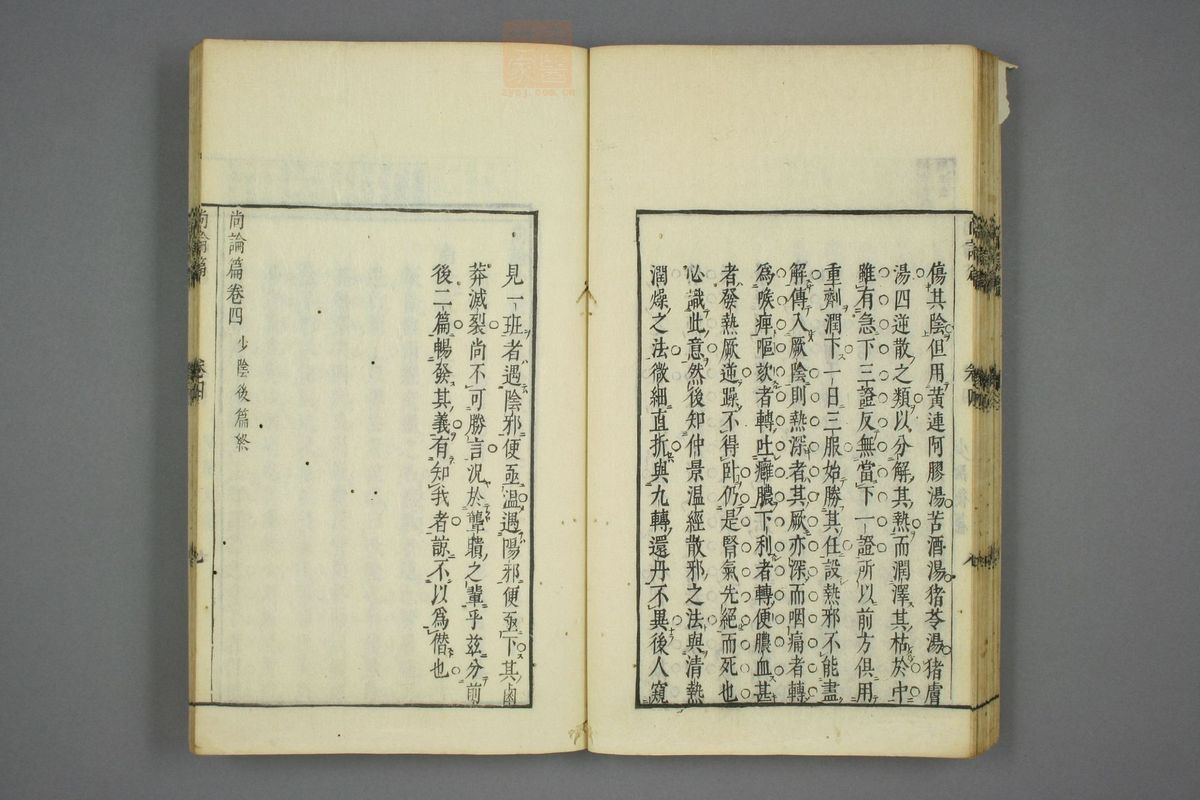 傷其陰但用黃連阿膠湯苦酒湯猪苓湯猪膚
湯四逆散之類以分解其熱而潤澤其枯於中
雖有急下三證反無當下一證所以前方俱用
重劑潤下一日三服始勝其任設熱邪不能盡
解傳入厥陰則熱深者其厥亦深而咽痛者轉
爲喉痺嘔欬者轉吐癰膿下利者轉便膿血甚
者發熱厥逆躁不得臥仍是腎氣先絕而死也
必識此意然後知仲景温經散邪之法與清熱
潤燥之法微細直折與九轉還丹不異後人窺
見一班者遇陰邪便亟温遇陽邪便亟下其鹵
莽滅裂尚不可勝言況於聾聵之輩乎茲分前
後二篇暢發其義有知我者諒不以爲僭也
尚論篇卷四 少陰後篇終
尚論篇
卷四
九
zyyj.com.cn